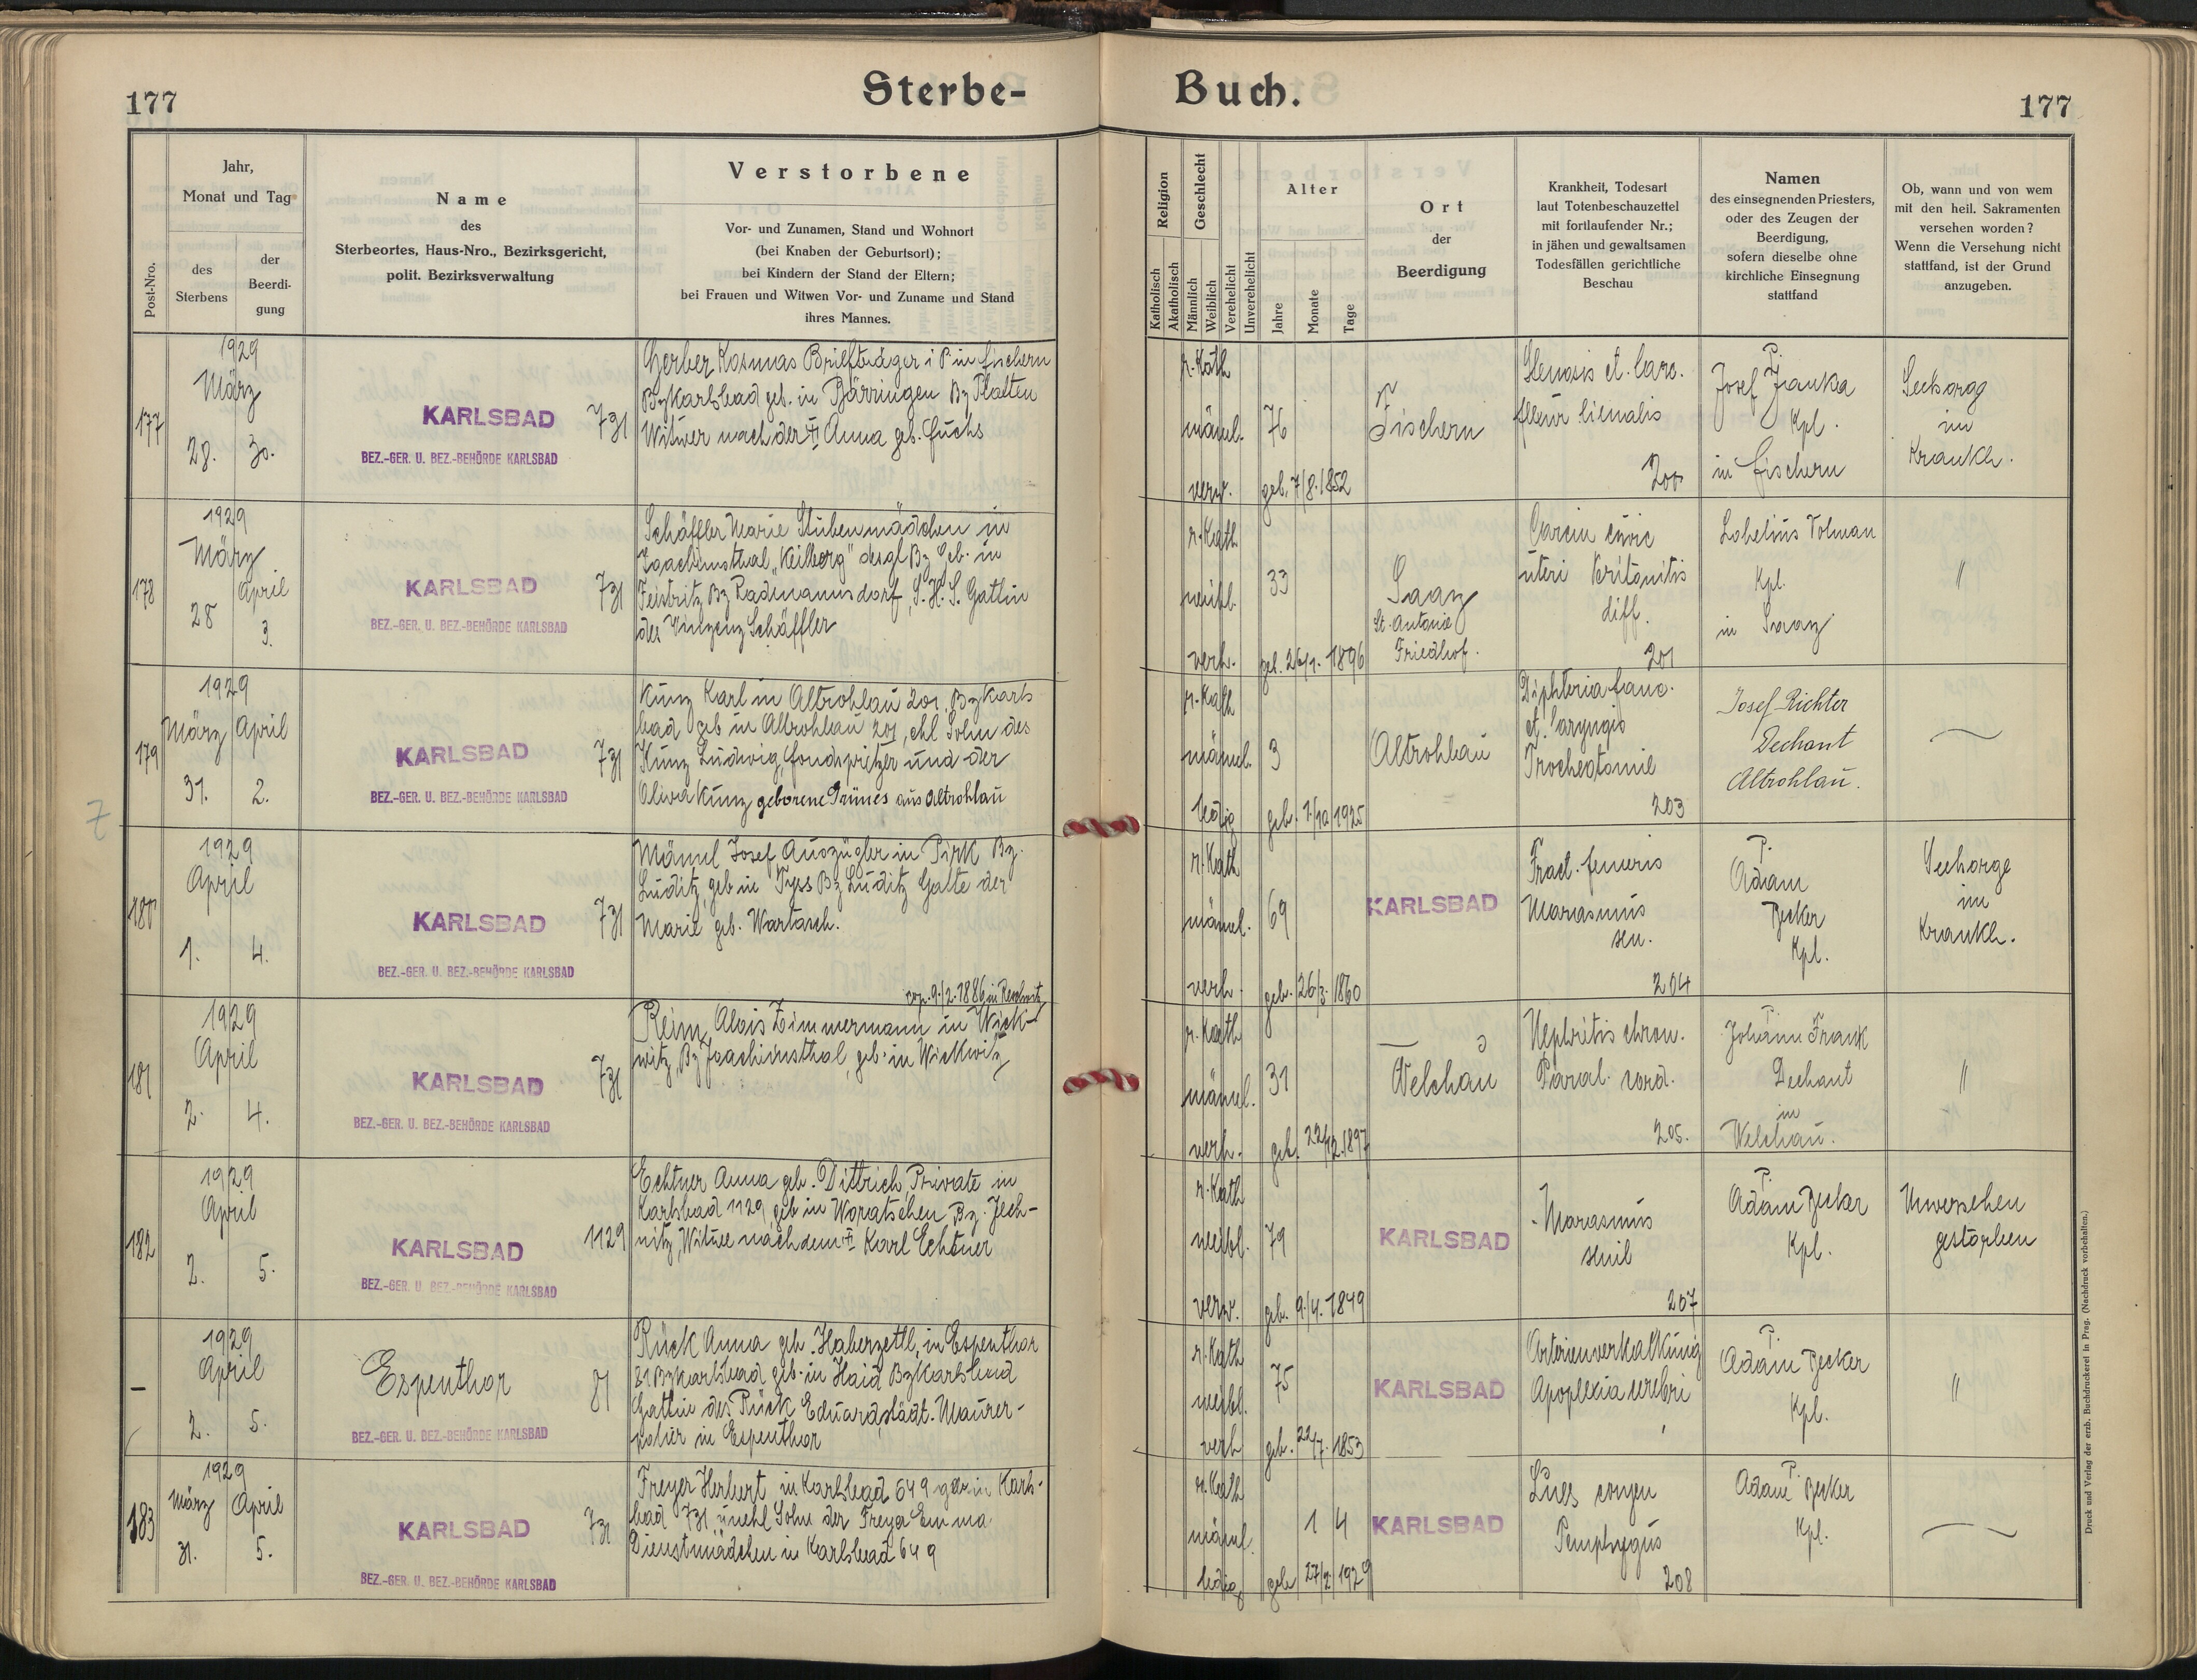 177
Sterbe-
Buch.
177
Post-Nro.
Jahr,
Monat und Tag
des
Sterbens
der
Beerdi-
gung
Name
des
Sterbeortes, Haus-Nro., Bezirksgericht,
polit. Bezirksverwaltung
Verstorbene
Vor- und Zunamen, Stand und Wohnort
(bei Knaben der Geburtsort);
bei Kindern der Stand der Eltern;
bei Frauen und Witwen Vor- und Zuname und Stand
ihres Mannes.
Religion
Katholisch
Akatholisch
Geschlecht
Männlich
Weiblich
Verehelicht
Unverehelicht
Alter
Jahre
Monate
Tage
Ort
der
Beerdigung
Krankheit, Todesart
laut Totenbeschauzettel
mit fortlaufender Nr.;
in jähen und gewaltsamen
Todesfällen gerichtliche
Beschau
Namen
des einsegnenden Priesters,
oder des Zeugen der
Beerdigung,
sofern dieselbe ohne
kirchliche Einsegnung
stattfand
Ob, wann und von wem
mit den heil. Sakramenten
versehen worden?
Wenn die Versehung nicht
stattfand, ist der Grund
anzugeben.
177
1929
März
28. 30.
KARLSBAD 731
BEZ.-GER. U. BEZ.-BEHÖRDE KARLSBAD
Gerber Kosmas Briefträger i P in Fischern
Bz Karlsbad geb. in Bärringen Bz Platten
Witwer nach der † Anna geb. Fuchs
r. Kath
männl.
verw.
76
geb. 7/8. 1852
Fischern
Stenosis et. Carc.
flexur lienalis
200
P.
Josef Janka
Kpl.
in Fischern
Seelsorge
im
Krankh.
178
1929
März April
28 3.
KARLSBAD 731
BEZ.-GER. U. BEZ.-BEHÖRDE KARLSBAD
Schäffler Marie Stubenmädchen in
Joachimsthal "Keilberg" desgl Bz Geb. in
Feistritz Bz Radmannsdorf, S. H. S. Gattin
des Vinzenz Schäffler
r. Kath
weibl.
verh.
33
geb. 26/1. 1896
Saaz
St. Antonie
Friedhof.
Carcin
uteri Peritonitis
diff.
201
Kpl.
in Saaz
"
179
1929
März April
31. 2.
KARLSBAD 731
BEZ.-GER. U. BEZ.-BEHÖRDE KARLSBAD
Kunz Karl in Altrohlau 201, Bz Karls
bad geb in Altrohlau 201, ehl Sohn des
Kunz Ludwig, und der
Olivia Kunz geborene Grünes aus Altrohlau
r. Kath
männl.
ledig
3
geb. 7/10 1925
Altrohlau
Diphteria fauc.
et. laryngis
Trocheotomie
203
Josef Richter
Dechant
Altrohlau.
7
180
1929
April
1. 4.
KARLSBAD 731
BEZ.-GER. U. BEZ.-BEHÖRDE KARLSBAD
Männl Josef Auszügler in Pirk Bz.
Luditz, geb in Tyss Bz Luditz Gatte der
Marie geb. Wartasch.
r. Kath
männl.
verh.
69
geb. 26/3. 1860
KARLSBAD
Fract. femoris
Marasmus
sen.
204
P.
Adam
Becker
Kpl.
Seelsorge
im
Krankh.
181
1929
April
2. 4.
KARLSBAD 731
BEZ.-GER. U. BEZ.-BEHÖRDE KARLSBAD
Reim Alois Zimmermann in Wick-
witz, Bz Joachimsthal, geb. in Wickwitz
r. Kath
männl.
verh.
31
geb. 22/12. 1897
Welchau
Nephritis chron.
Paral. cord.
205.
P.
Johann Frank
Dechant
in
Welchau.
"
182
1929
April
2. 5.
KARLSBAD 1129
BEZ.-GER. U. BEZ.-BEHÖRDE KARLSBAD
Echtner Anna geb. Dittrich, Private in
Karlsbad 1129, geb in Woratschen Bz. Jech-
nitz, Witwe nach dem † Karl Echtner
r. Kath
weibl.
verw.
79
geb. 9/4. 1849
KARLSBAD
Marasmus
senil
207
P.
Adam Becker
Kpl.
Unversehen
gestorben
–
1929
April
2. 5.
Espenthor 81
BEZ.-GER. U. BEZ.-BEHÖRDE KARLSBAD
Rück Anna geb. Haberzettl, in Espenthor
81 Bz Karlsbad geb. in Haid Bz Karlsbad
Gattin des Rück Eduard, städt. Maurer-
polier in Espenthor
r. Kath
weibl.
verh
75
geb. 22/7. 1853
KARLSBAD
Arterienverkalkung
Apoplexia cerebri
P.
Adam Becker
Kpl.
"
183
1929
März April
31. 5.
KARLSBAD 731
BEZ.-GER. U. BEZ.-BEHÖRDE KARLSBAD
Freyer Herbert in Karlsbad 649 geb in Karls-
bad 731, unehl Sohn der Freya Emma
Dienstmädchen in Karlsbad 649
r. Kath
männl.
ledig
1 4
geb 27/2. 1929
KARLSBAD
Lues congen
Pemphygus
208
P.
Adam Becker
Kpl.
Druck und Verlag der erzb. Buchdruckerei in Prag. (Nachdruck vorbehalten.)